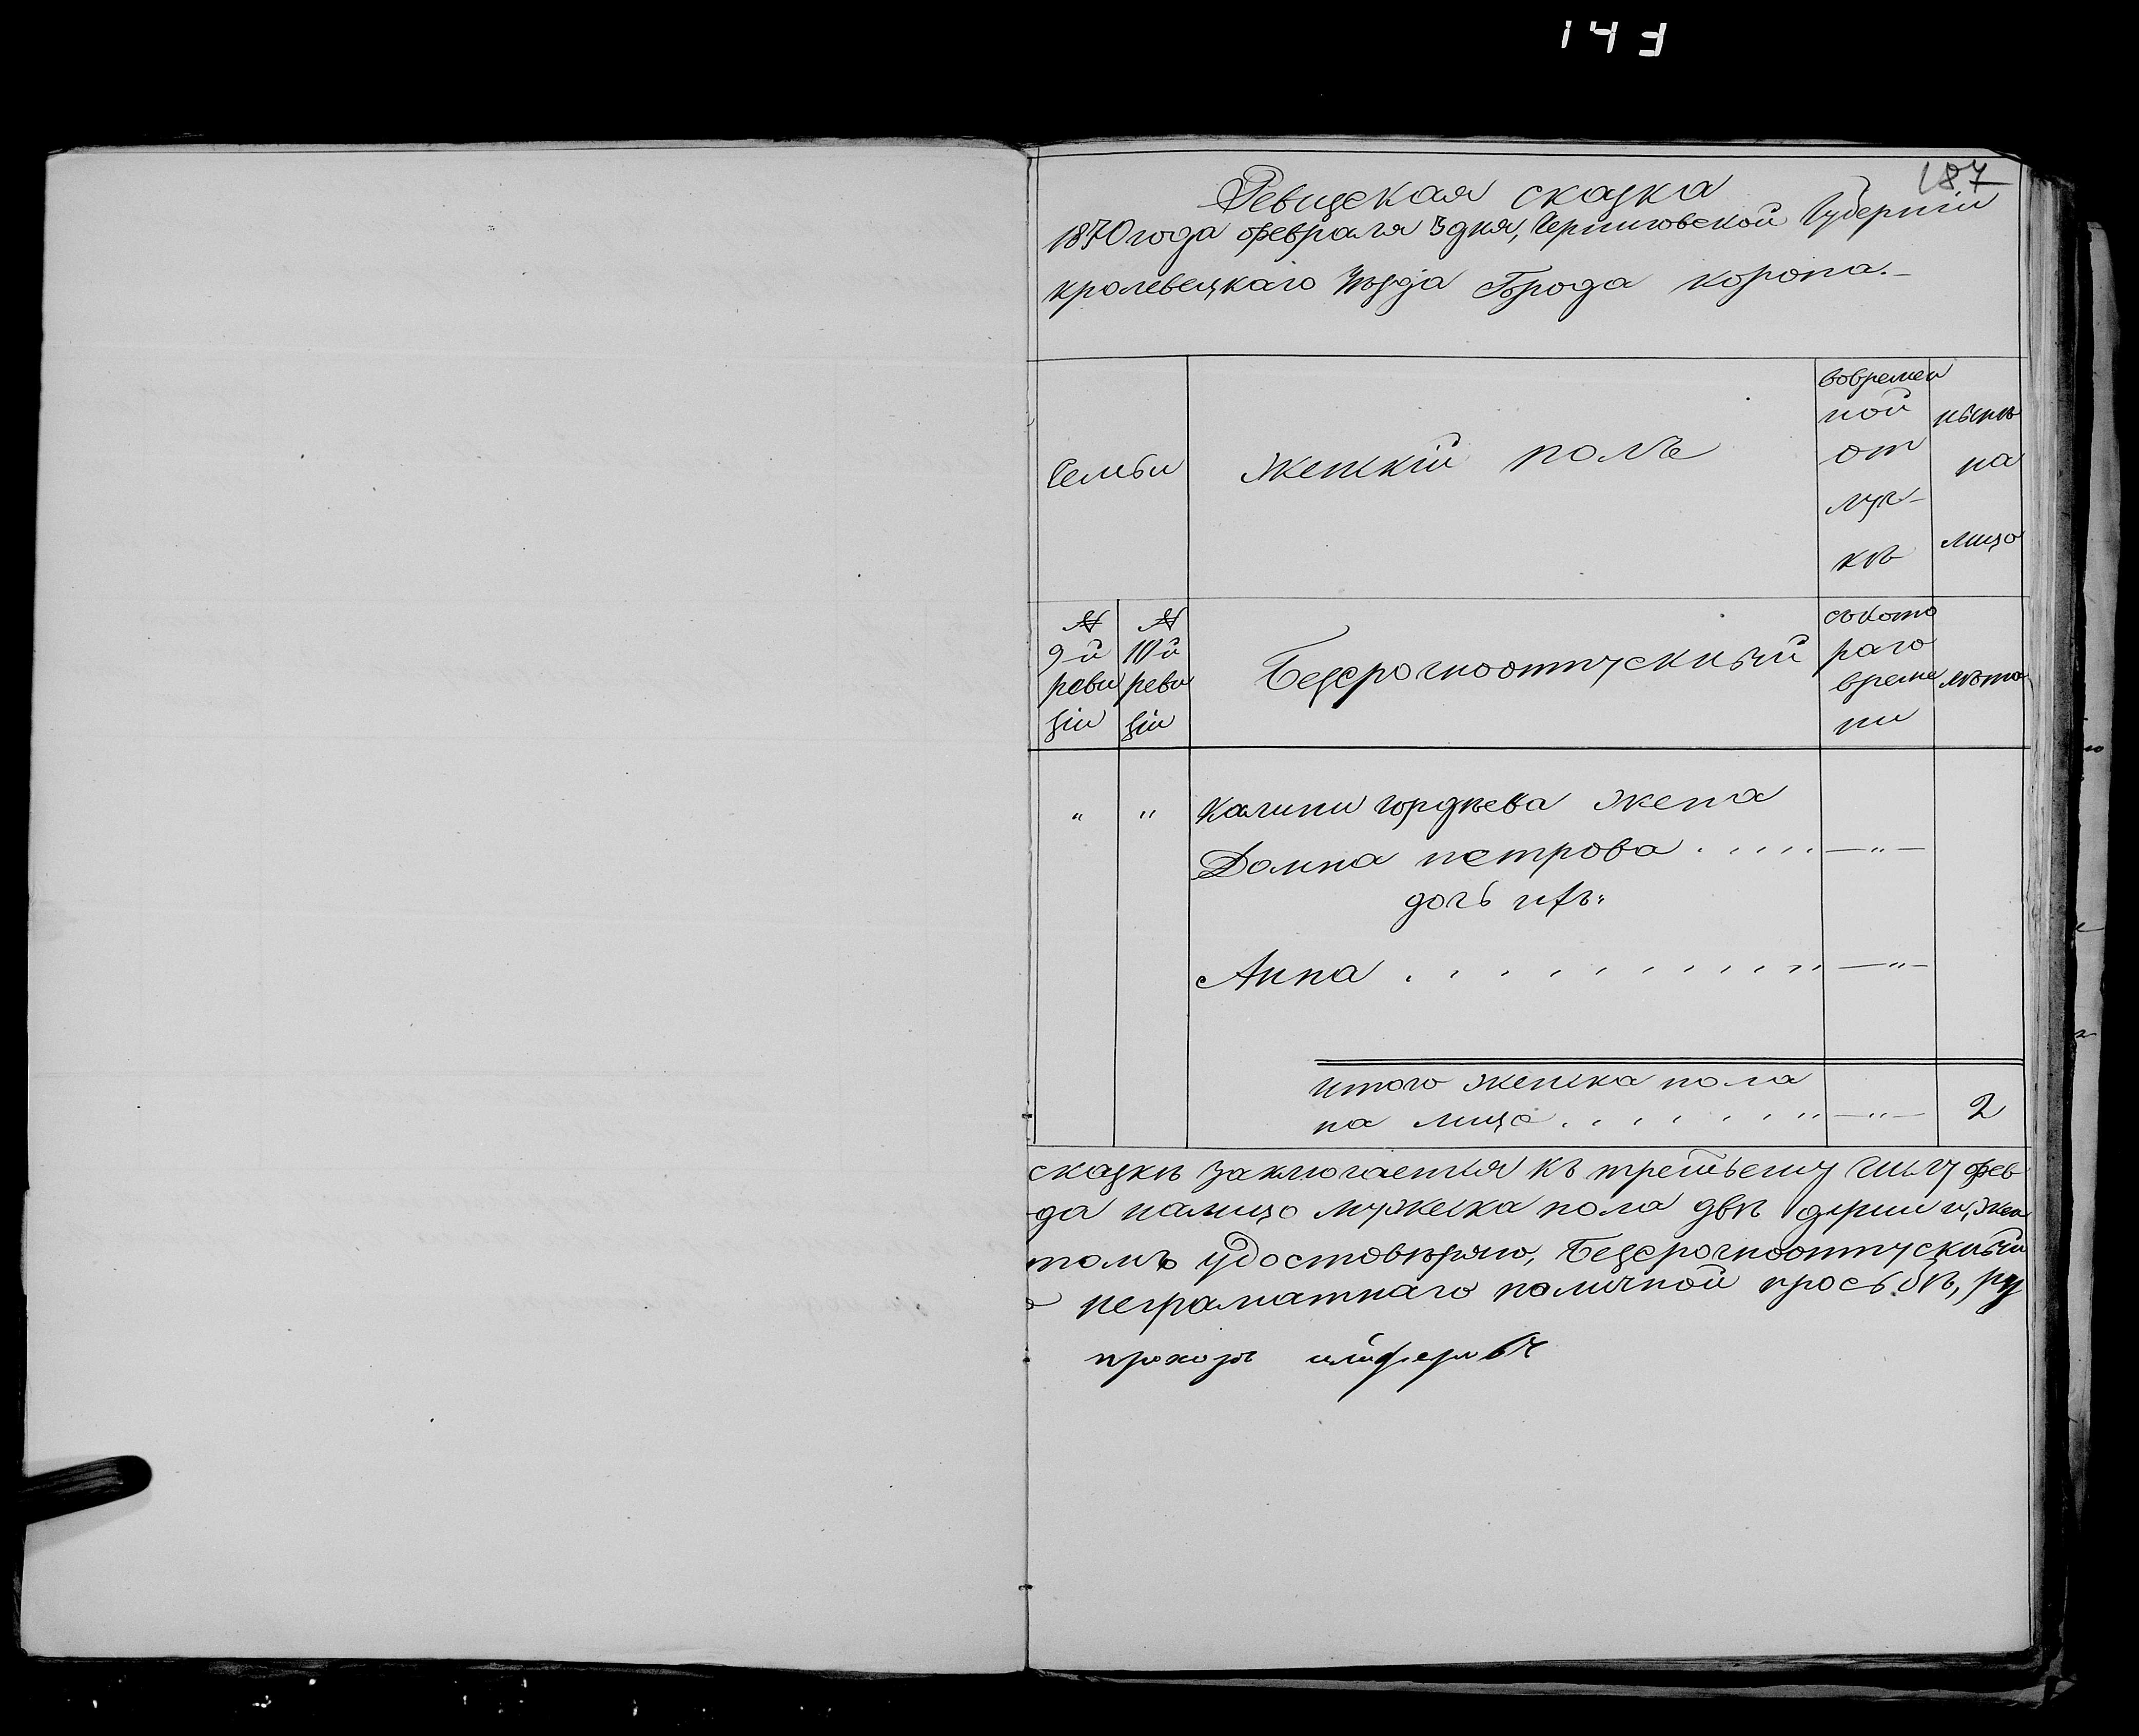 143
187
Ревизская сказка
1870 года февраля 3 дня, Черниговской Губерніи
кролевецкаго Уѣзда Города коропа.-
Семьи
Женскій полъ
вовремен
ной
от
луч-
кѣ
нынѣ
на
лицо
№
9-й
реви
зіи
№
10й
реви
зіи
Безсрочноотпускный
съкото
раго
време
ни
лѣта
"
"
Калины гордѣева жена
Домна петрова . . . . . —"—
дочь ихъ
Анна . . . . . . . . . . . —"—
итого женска пола
на лицо . . . . . . . . —"— 2
сказкѣ заключается къ третьему числу фев
да налицо мужеска пола двѣ души и, жен
томъ удостовѣряю, Безсрочноотпускный
неграматнаго поличной просьбѣ, ру
прохоръ